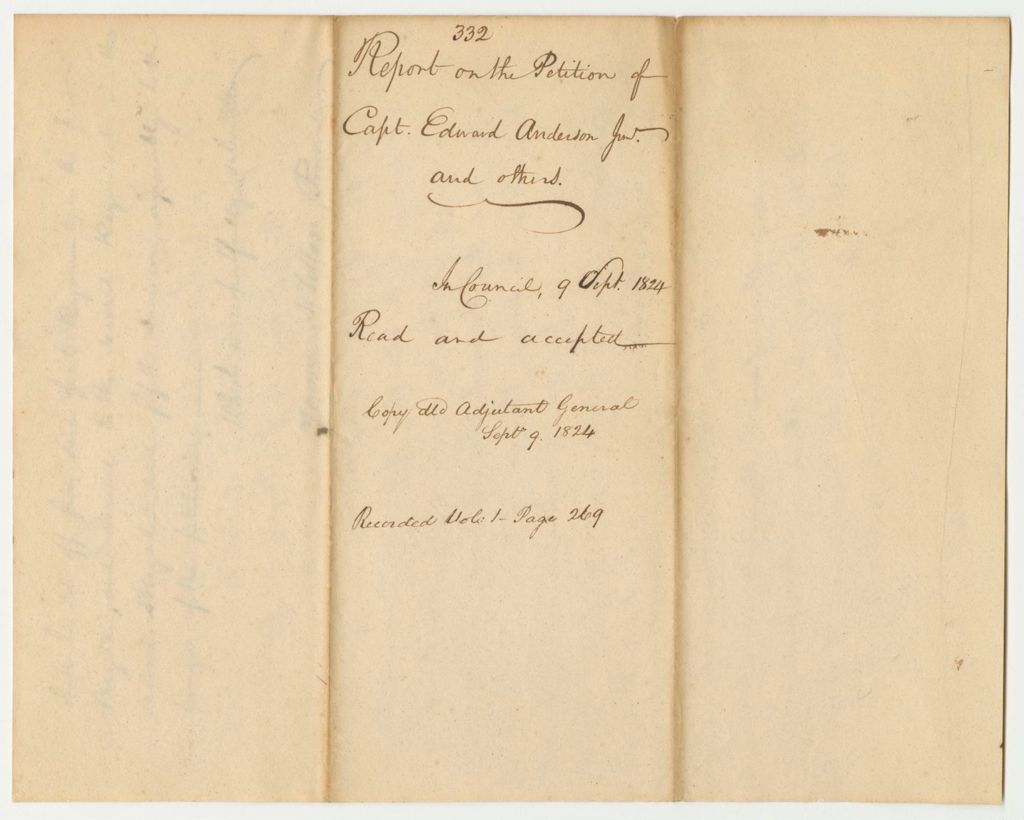 332
Report on the Petition of
Capt. Edward Anderson Junr.
and others.
In Council, 9 Sept. 1824
Read and accepted
Copy dld Adjutant General
Sept 9. 1824
Recorded Vol: 1 - Page 269